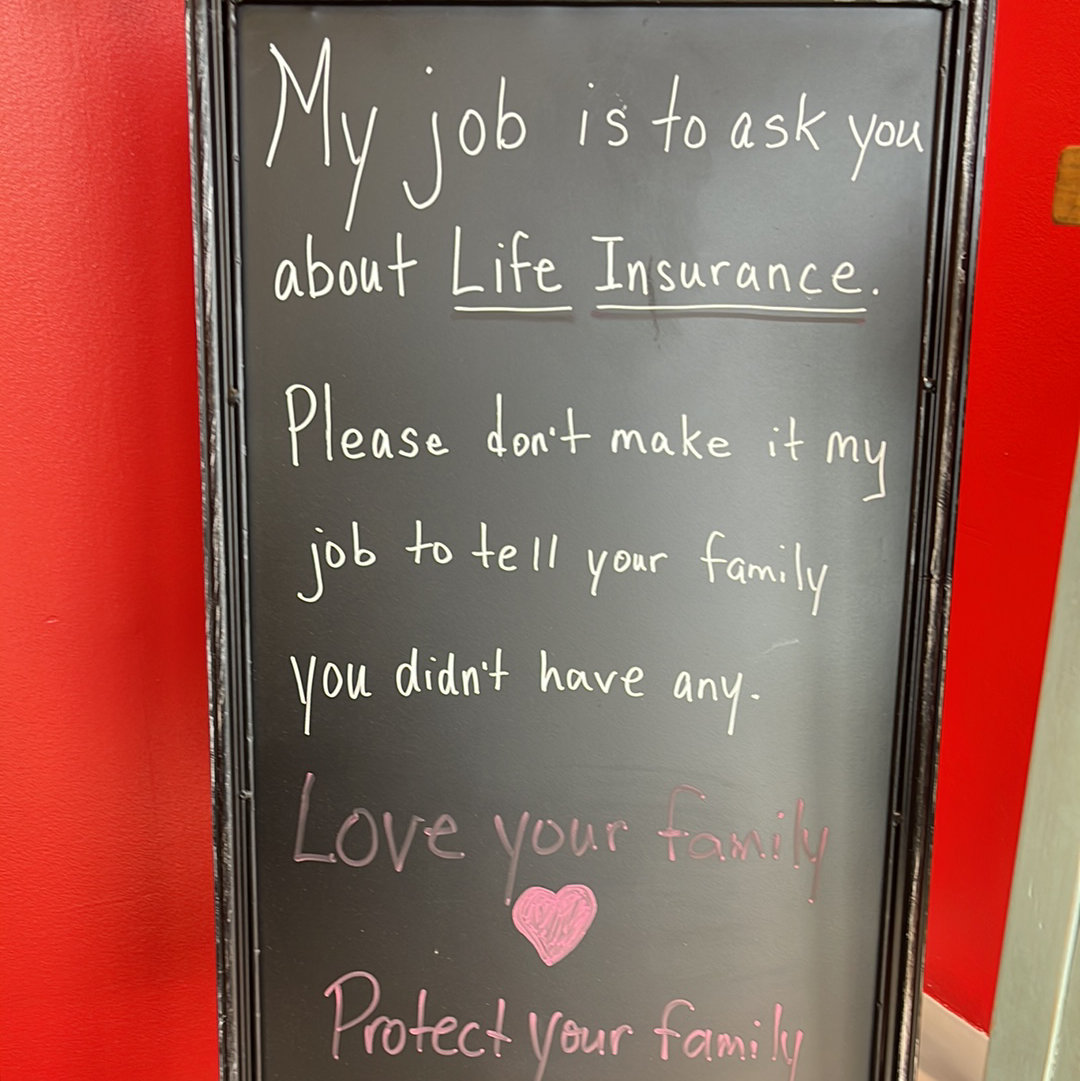 My job is to ask you
about Life Insurance.
Please don't make it my
job to tell your family
you didn't have any.
Love your family
Protect your family